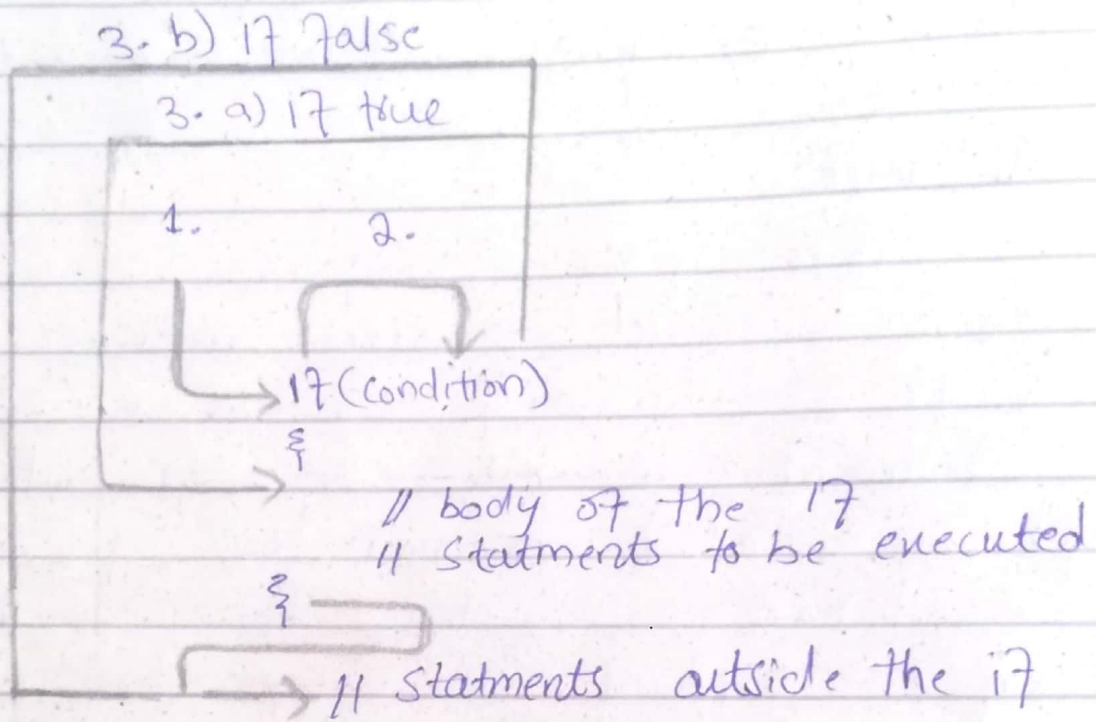 3. b) if false
3. a) if true
1. 2.
if (condition)
{
// body of the if
// Statments to be executed
}
// Statments outside the if